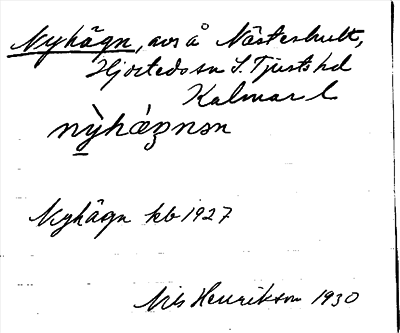 Nyhägn, avs å Västerhult,
Hjorteds sn S. Tjusts hd
Kalmar l
nỳhágnən
Nyhägn kb 1927
Nils Henrikson 1930